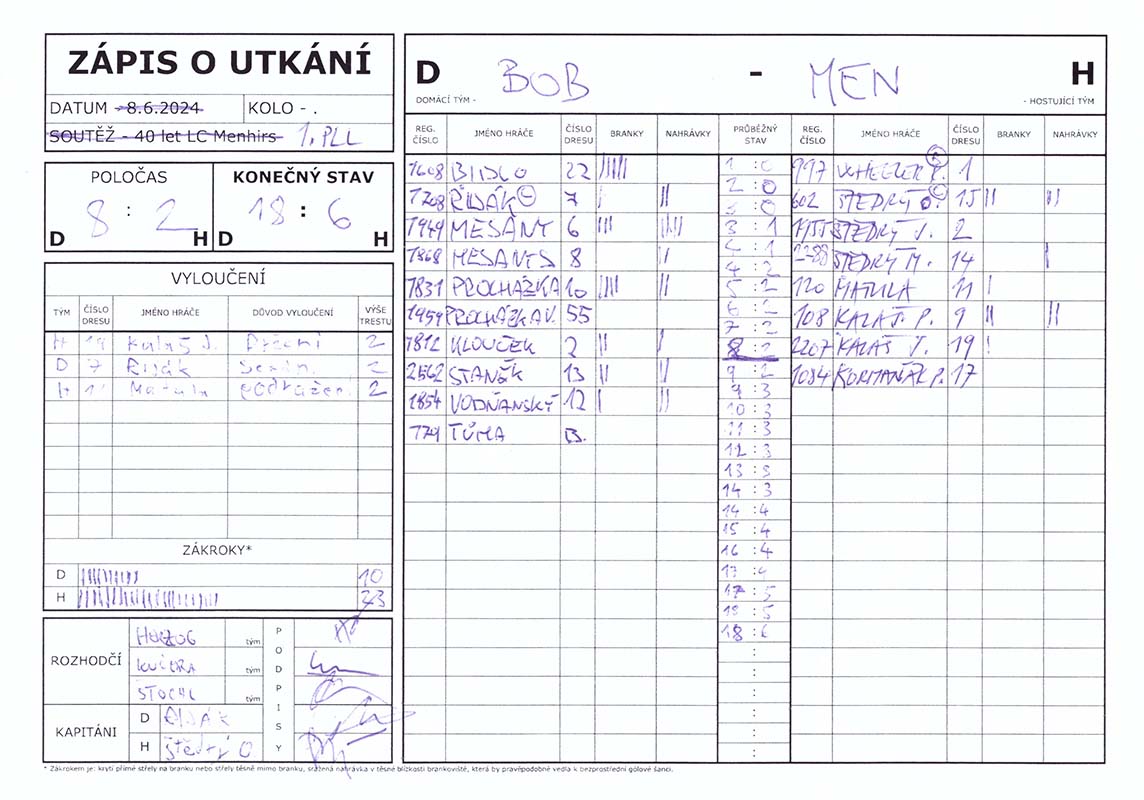 ZÁPIS O UTKÁNÍ
DATUM - 8.6.2024 KOLO - .
SOUTĚŽ - 40 let LC Menhirs 1. PLL
POLOČAS
8 : 2
D H
KONEČNÝ STAV
18 : 6
D H
VYLOUČENÍ
TÝM ČÍSLO DRESU JMÉNO HRÁČE DŮVOD VYLOUČENÍ VÝŠE TRESTU
H 19 Kalaš J. Držení 2
D 7 Řiďák 2
H Matula podražení 2
ZÁKROKY*
D 10
H 23
ROZHODČÍ
HERZOG tým
KUČERA tým
ŠTOCHL tým
KAPITÁNI
D ŘIĎÁK
H Štědrý O
PODPISY
D BOB - MEN H
DOMÁCÍ TÝM - - HOSTUJÍCÍ TÝM
REG. ČÍSLO JMÉNO HRÁČE ČÍSLO DRESU BRANKY NAHRÁVKY PRŮBĚŽNÝ STAV REG. ČÍSLO JMÉNO HRÁČE ČÍSLO DRESU BRANKY NAHRÁVKY
1608 BIDLO 22 1 : 0 997 WHEELER P. B 1
1208 ŘIĎÁK C 7 2 : 0 602 ŠTĚDRÝ O. C 15
1949 MESANY 6 3 : 0 1155 ŠTĚDRÝ J. 2
1868 MESANY S 8 3 : 1 2288 ŠTĚDRÝ M. 14
7831 PROCHÁZKA 10 4 : 1 120 MATULA 11
1959 PROCHÁZKA V. 55 4 : 2 108 KALAŠ P. 9
1812 KLOUČEK 2 5 : 2 2207 KALAŠ J. 19
2562 STANĚK 13 6 : 2 1084 KORMAŇÁK P. 17
1854 VODŇANSKÝ 12 7 : 2
779 TŮMA B. 8 : 2
9 : 2
9 : 3
10 : 3
11 : 3
12 : 3
13 : 3
14 : 3
14 : 4
15 : 4
16 : 4
17 : 4
17 : 5
18 : 5
18 : 6
* Zákrokem je: krytí přímé střely na branku nebo střely těsně mimo branku, sražená nahrávka v těsné blízkosti brankoviště, která by pravěpodobně vedla k bezprostřední gólové šanci.